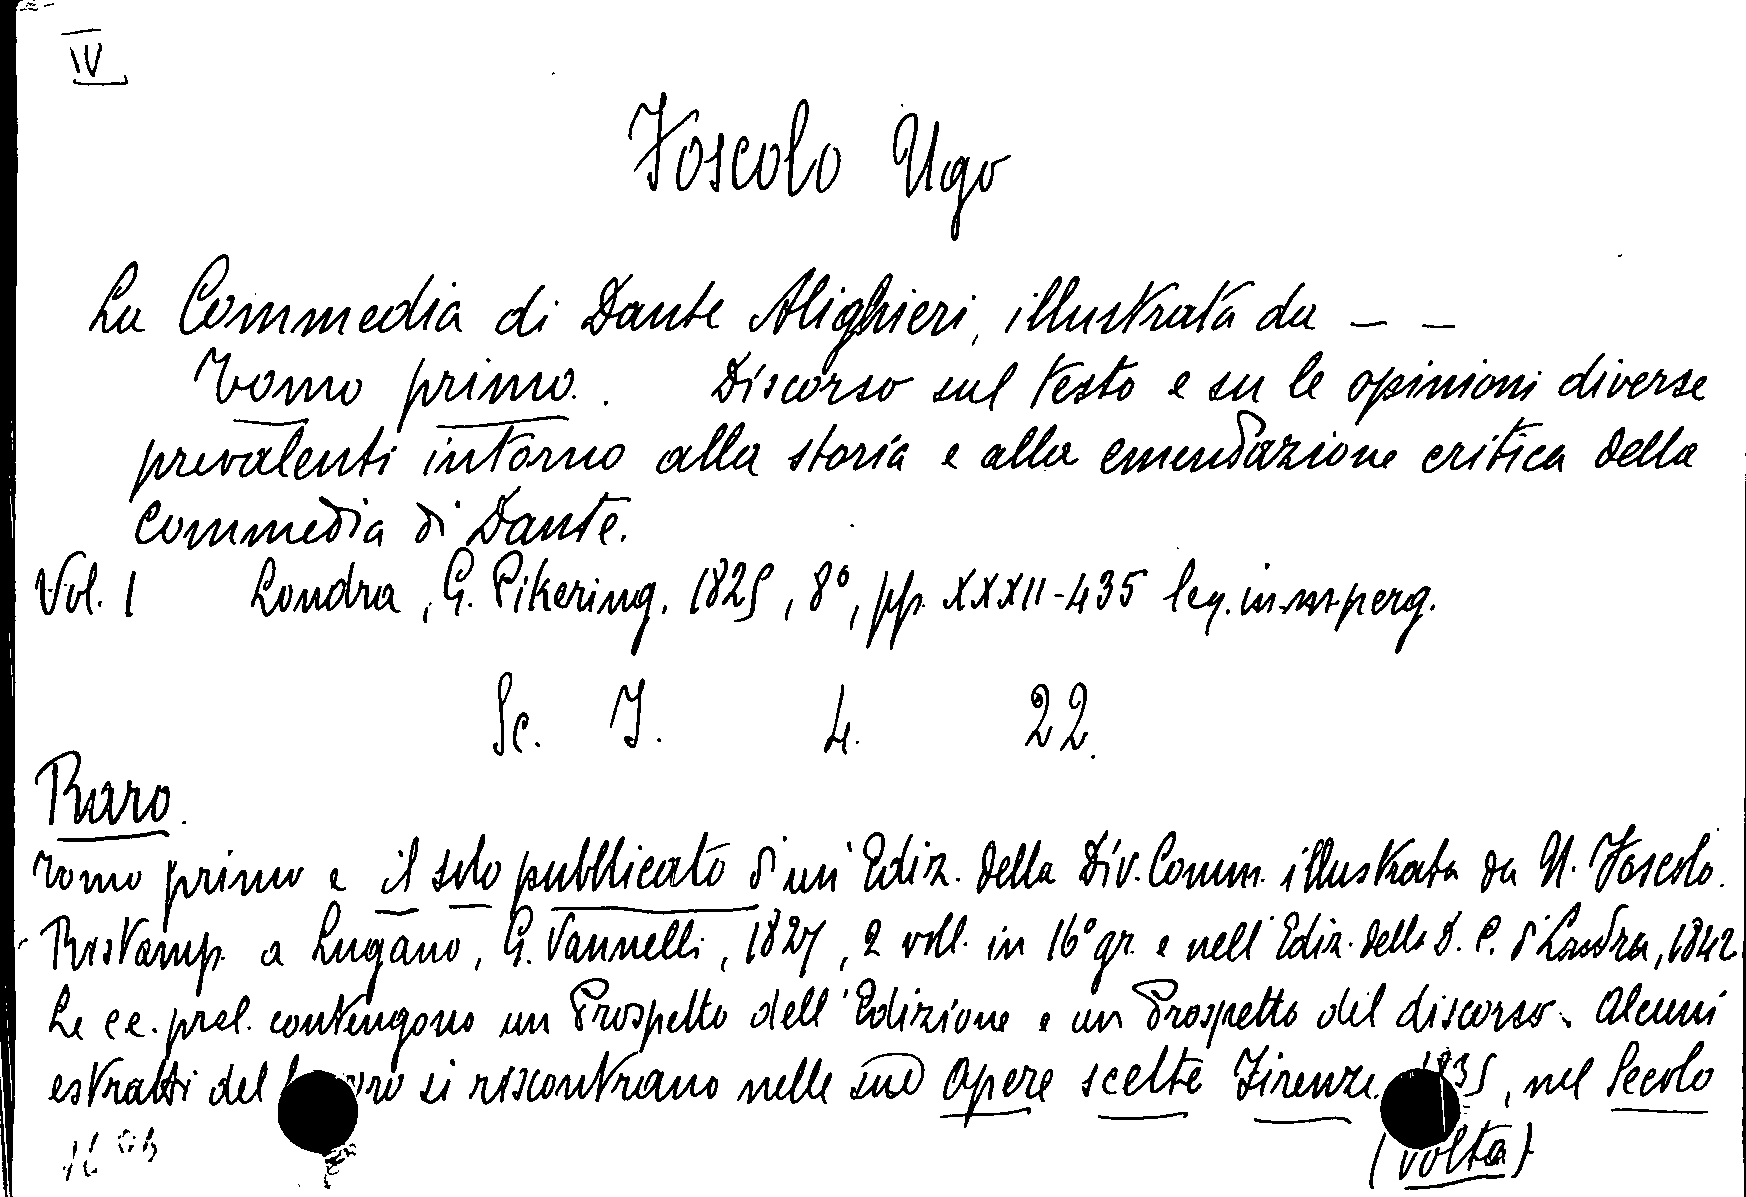 IV
Foscolo Ugo
La Commedia di Dante Alighieri, illustrata da – –
Tomo primo. Discorso sul testo e su le opinioni diverse
prevalenti intorno alla storia e alla emendazione critica della
Commedia di Dante.
Vol. 1 Londra, G. Pikering, 1825, 8°, pp. XXXII-435 leg. in m. perg.
Sc. I. 4. 22.
Raro.
Tomo primo e il solo pubblicato d'un' Ediz. della Div. Comm. illustrata da U. Foscolo.
Ristamp. a Lugano, G. Vannelli, 1827, 2 voll. in 16° gr. e nell' Ediz. della D. C. di Londra, 1842
Le cc. prel. contengono un Prospetto dell' Edizione e un Prospetto del discorso. Alcuni
estratti del lavoro si riscontrano nelle sue Opere scelte Firenze 1835, nel Secolo
(volta)